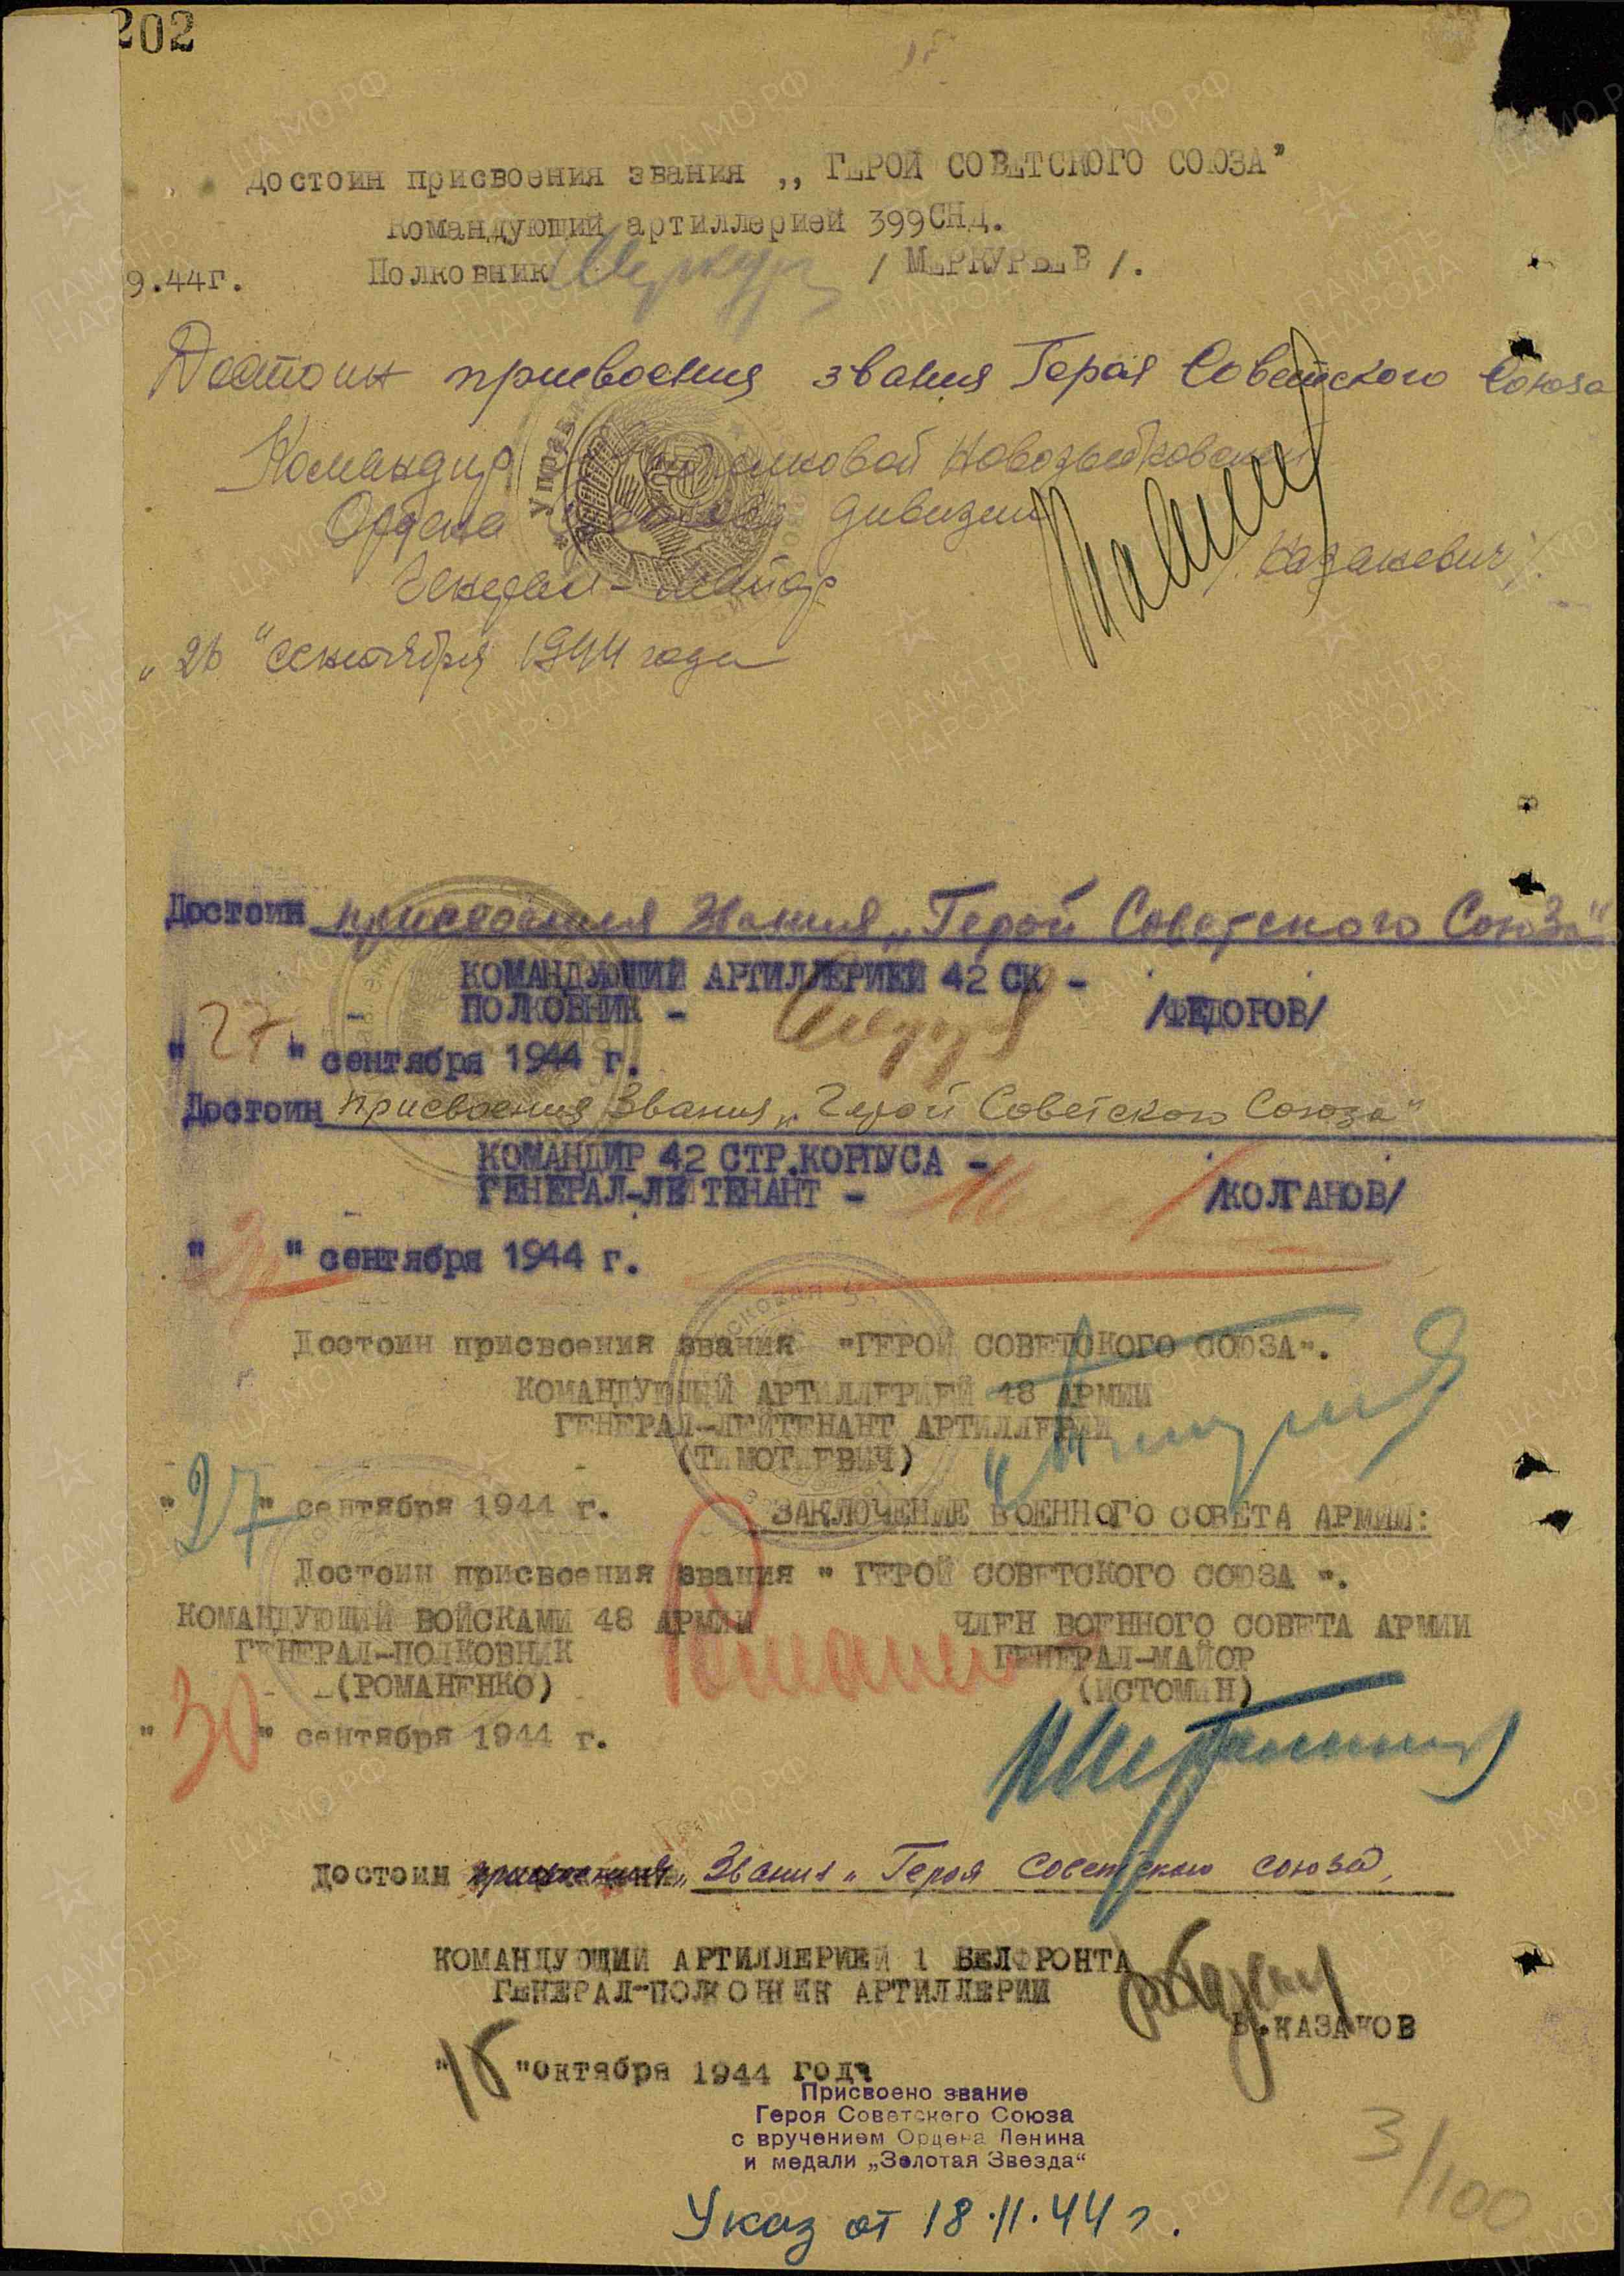 202
Достоин присвоения звания „ ГЕРОЙ СОВЕТСКОГО СОЮЗА"
Командующий артиллерией 399СНД.
9.44г. Полковник / МЕРКУРЬЕВ /.
Достоин присвоения звания Героя Советского Союза
Командир стрелковой Новозыбковской
Ордена дивизии
Генерал-майор /Казакевич/.
„26" сентября 1944 года
Достоин присвоения Звания „Герой Советского Союза"
КОМАНДУЮЩИЙ АРТИЛЛЕРИЕЙ 42 СК -
ПОЛКОВНИК - /ФЕДОРОВ/
" 27 " сентября 1944 г.
Достоин присвоения Звания „Герой Советского Союза"
КОМАНДИР 42 СТР.КОРПУСА -
ГЕНЕРАЛ-ЛЕЙТЕНАНТ - /КОЛГАНОВ/
" " сентября 1944 г.
Достоин присвоения звания "ГЕРОЙ СОВЕТСКОГО СОЮЗА".
КОМАНДУЮЩИЙ АРТИЛЛЕРИЕЙ 48 АРМИИ
ГЕНЕРАЛ-ЛЕЙТЕНАНТ АРТИЛЛЕРИИ
(ТИМОТИЕВИЧ)
"27" сентября 1944 г.
ЗАКЛЮЧЕНИЕ ВОЕННОГО СОВЕТА АРМИИ:
Достоин присвоения звания " ГЕРОЙ СОВЕТСКОГО СОЮЗА ".
КОМАНДУЮЩИЙ ВОЙСКАМИ 48 АРМИИ ЧЛЕН ВОЕННОГО СОВЕТА АРМИИ
ГЕНЕРАЛ-ПОЛКОВНИК ГЕНЕРАЛ-МАЙОР
(РОМАНЕНКО) (ИСТОМИН)
"30" сентября 1944 г.
достоин присвоения „ Звания „ Героя Советского Союза,
КОМАНДУЮЩИЙ АРТИЛЛЕРИЕЙ 1 БЕЛФРОНТА
ГЕНЕРАЛ-ПОЛКОВНИК АРТИЛЛЕРИИ
В.КАЗАКОВ
" "октября 1944 года
Присвоено звание
Героя Советского Союза
с вручением Ордена Ленина
и медали „Золотая Звезда"
3/100
Указ от 18.11.44 г.